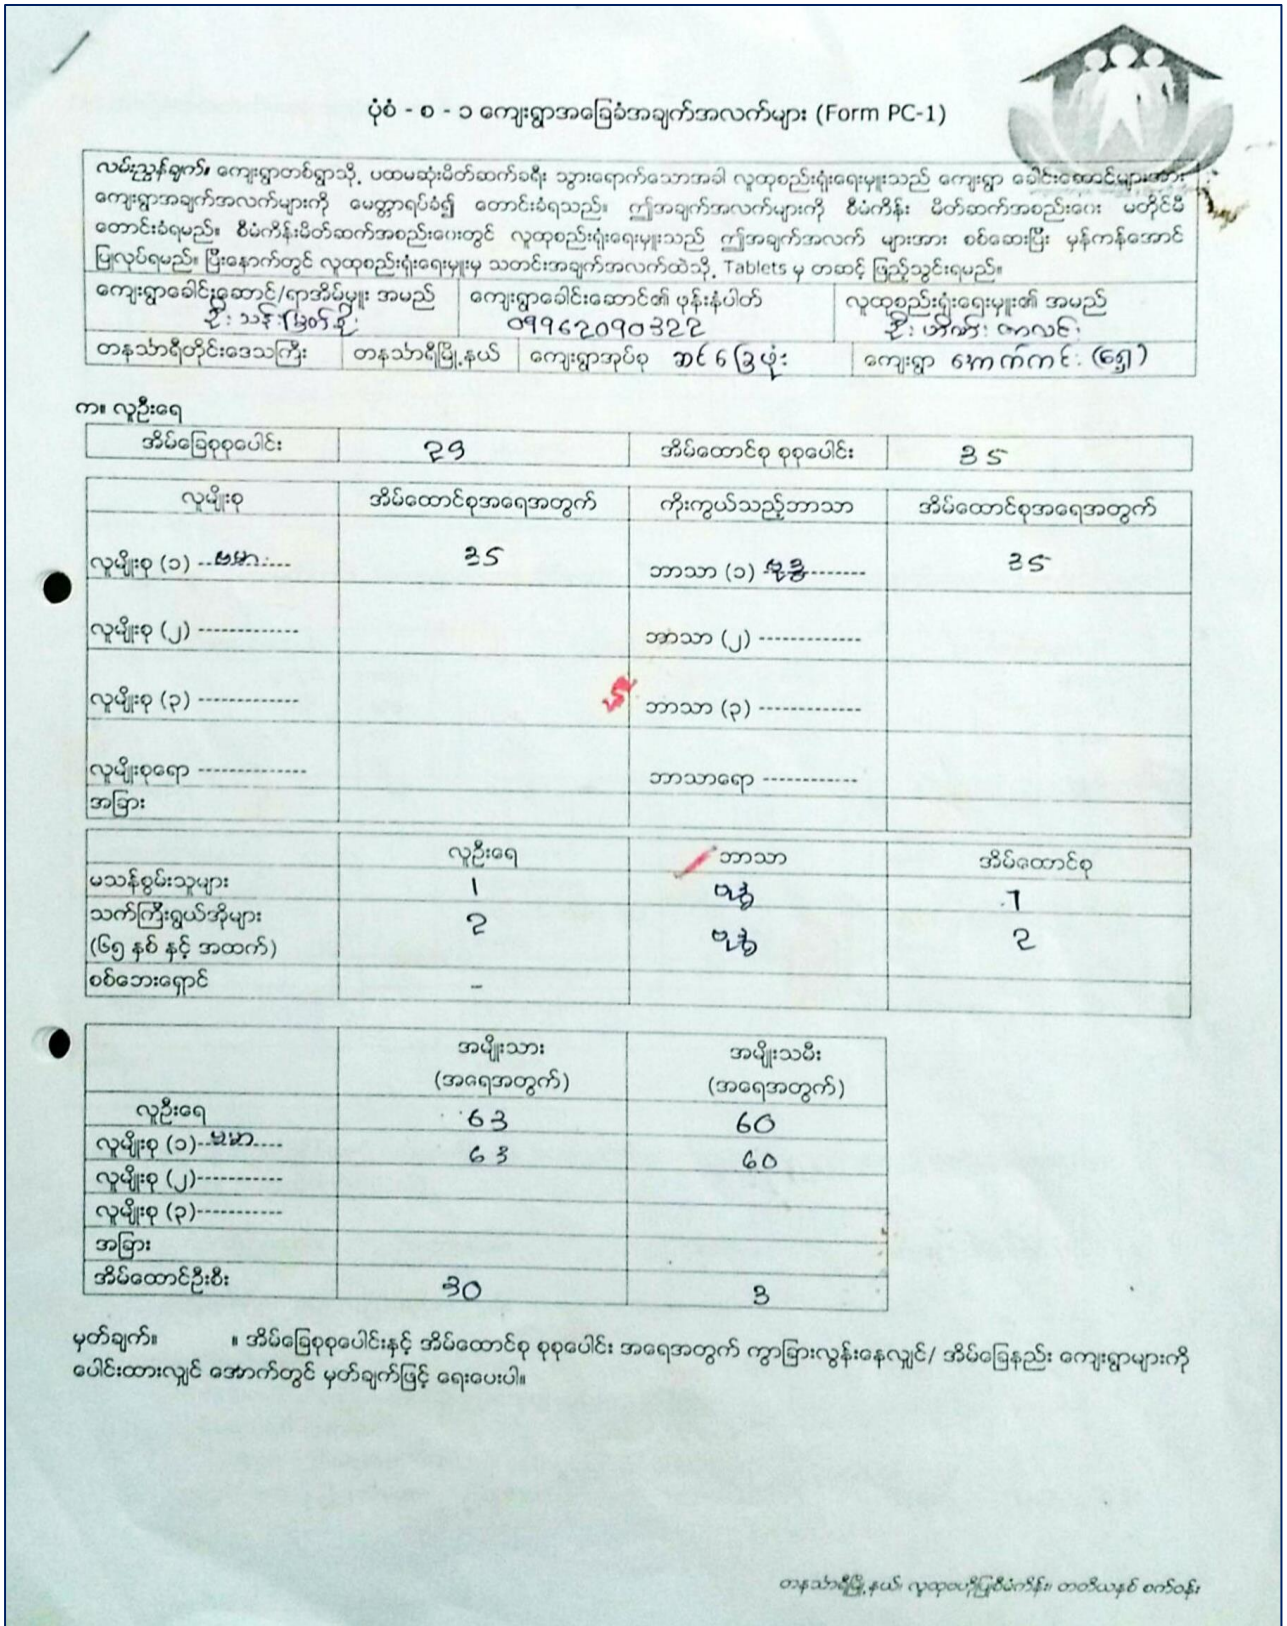 ပုံစံ - စ - ၁ ကျေးရွာအခြေခံအချက်အလက်များ (Form PC-1)
လမ်းညွှန်ချက်။ ကျေးရွာတစ်ရွာသို့ ပထမဆုံးမိတ်ဆက်ခရီး သွားရောက်သောအခါ လူထုစည်းရုံးရေးမှူးသည် ကျေးရွာ ခေါင်းဆောင်များအား
ကျေးရွာအချက်အလက်များကို မေတ္တာရပ်ခံ၍ တောင်းခံရသည်။ ဤအချက်အလက်များကို စီမံကိန်း မိတ်ဆက်အစည်းဝေး မတိုင်မီ
တောင်းခံရမည်။ စီမံကိန်းမိတ်ဆက်အစည်းဝေးတွင် လူထုစည်းရုံးရေးမှူးသည် ဤအချက်အလက် များအား စစ်ဆေးပြီး မှန်ကန်အောင်
ပြုလုပ်ရမည်။ ပြီးနောက်တွင် လူထုစည်းရုံးရေးမှူးမှ သတင်းအချက်အလက်ထဲသို့ Tablets မှ တဆင့် ဖြည့်သွင်းရမည်။
ကျေးရွာခေါင်းဆောင်/ရာအိမ်မှူး အမည် ကျေးရွာခေါင်းဆောင်၏ ဖုန်းနံပါတ် လူထုစည်းရုံးရေးမှူး၏ အမည်
09962090322
တနင်္သာရီတိုင်းဒေသကြီး တနင်္သာရီမြို့နယ် ကျေးရွာအုပ်စု ဆင်ခြေဖုံး ကျေးရွာ
က။ လူဦးရေ
အိမ်ခြေစုစုပေါင်း 29 အိမ်ထောင်စု စုစုပေါင်း 35
လူမျိုးစု အိမ်ထောင်စုအရေအတွက် ကိုးကွယ်သည့်ဘာသာ အိမ်ထောင်စုအရေအတွက်
လူမျိုးစု (၁) ဗမာ 35 ဘာသာ (၁) ဗုဒ္ဓ 35
လူမျိုးစု (၂) ------------- ဘာသာ (၂) -------------
လူမျိုးစု (၃) ------------- ဘာသာ (၃) -------------
လူမျိုးစုရော -------------- ဘာသာရော ------------
အခြား
လူဦးရေ ဘာသာ အိမ်ထောင်စု
မသန်စွမ်းသူများ 1 ဗုဒ္ဓ 1
သက်ကြီးရွယ်အိုများ 2 ဗုဒ္ဓ 2
(၆၅ နှစ် နှင့် အထက်)
စစ်ဘေးရှောင် -
အမျိုးသား အမျိုးသမီး
(အရေအတွက်) (အရေအတွက်)
လူဦးရေ 63 60
လူမျိုးစု (၁) ဗမာ 63 60
လူမျိုးစု (၂)-----------
လူမျိုးစု (၃)-----------
အခြား
အိမ်ထောင်ဦးစီး 30 3
မှတ်ချက်။ ။ အိမ်ခြေစုစုပေါင်းနှင့် အိမ်ထောင်စု စုစုပေါင်း အရေအတွက် ကွာခြားလွန်းနေလျှင်/ အိမ်ခြေနည်း ကျေးရွာများကို
ပေါင်းထားလျှင် အောက်တွင် မှတ်ချက်ဖြင့် ရေးပေးပါ။
တနင်္သာရီမြို့နယ်၊ လူထုဗဟိုပြုစီမံကိန်း၊ တတိယနှစ် စက်ဝန်း